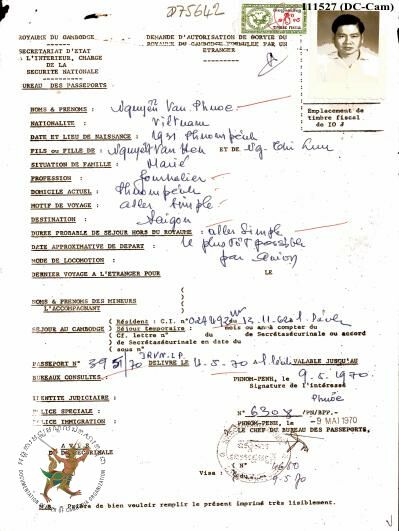 D75642
111527 (DC-Cam)
ROYAUME DU CAMBODGE
SECRETARIAT D'ETAT
A L'INTERIEUR, CHARGE
DE LA
SECURITE NATIONALE
BUREAU DES PASSEPORTS
DEMANDE D'AUTORISATION DE SORTIE DU
ROYAUME DU CAMBODGE FORMULEE PAR UN
ETRANGER
Emplacement de
timbre fiscal
de 10 $
NOMS & PRENOMS : Nguyễn Van Phuoc
NATIONALITE : Viêtnam
DATE ET LIEU DE NAISSANCE : 1931 Phnompénh
FILS ou FILLE de : Nguyễn Van Hen ET DE Ng-Thi Lun
SITUATION DE FAMILLE : Marié
PROFESSION : Journalier
DOMICILE ACTUEL : Phnompénh
MOTIF DE VOYAGE : aller simple
DESTINATION : Saigon
DUREE PROBABLE DE SEJOUR HORS DU ROYAUME : aller simple
DATE APPROXIMATIVE DE DEPART : le plus tôt possible
MODE DE LOCOMOTION : par avion
DERNIER VOYAGE A L'ETRANGER POUR LE
NOMS & PRENOMS DES MINEURS
L'ACCOMPAGNANT
SEJOUR AU CAMBODGE
Résident : C.I. n° du 13.11.62
Séjour temporaire : mois ou an à compter du
Cf. lettre n° du de Secrétaséeurinale ou accord
de Secrétaséeurinale en date du
sous n°
PASSEPORT N° 3951/70 DELIVRE LE 4.5.70 VALABLE JUSQU'AU
BUREAUX CONSULTES :
PHNOM-PENH, le 9.5.1970
Signature de l'intéressé
Phuoc
IDENTITE JUDICIAIRE :
POLICE SPECIALE :
POLICE IMMIGRATION :
N° 6308 /PN/BPP.-
PHNOM-PENH, le - 9 MAI 1970
LE CHEF DU BUREAU DES PASSEPORTS,
Visa :
9.5.70
N.B. Prière de bien vouloir remplir le présent imprimé très lisiblement.